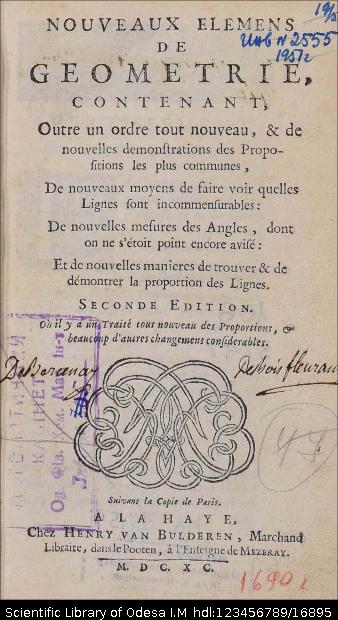 NOUVEAUX ELEMENS
DE
GEOMETRIE,
CONTENANT,
Outre un ordre tout nouveau, & de
nouvelles demonſtrations des Propo-
ſitions les plus communes,
De nouveaux moyens de faire voir quelles
Lignes ſont incommenſurables:
De nouvelles meſures des Angles, dont
on ne s'étoit point encore aviſé:
Et de nouvelles manieres de trouver & de
démontrer la proportion des Lignes.
SECONDE EDITION.
Où il y a un Traité tout nouveau des Proportions, &
beaucoup d'autres changemens conſiderables.
Suivant la Copie de Paris.
A LA HAYE,
Chez HENRY VAN BULDEREN, Marchand
Libraire, dans le Pooten, à l'Enſeigne de MEZERAY.
M. DC. XC.
1690
Scientific Library of Odesa I.M hdl:123456789/16895